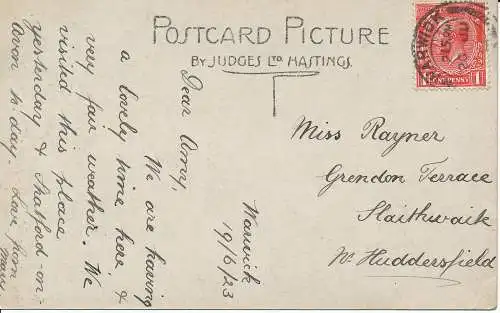 POSTCARD PICTURE
BY JUDGES LTD HASTINGS.
WARWICK
ONE PENNY
Warwick
19/6/23
Dear Amy,
We are having
a lovely time here, &
very fair weather. We
visited this place
yesterday & Stratford-on-
Avon to-day. Love from
Mary
Miss Rayner
Grendon Terrace
Slaithwaite
Nr Huddersfield